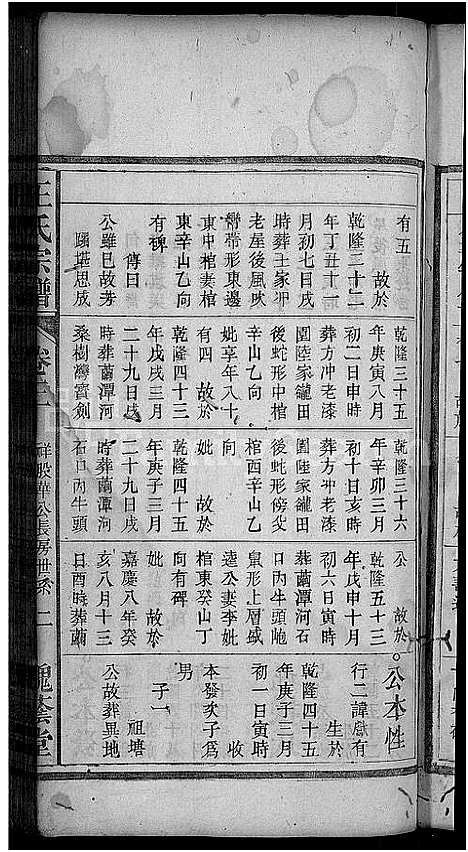 有五
故於
乾隆三十二
年丁丑十一
月初七日戌
時葬王家冲
老屋後風吹
帶形東邊
東中棺妻棺
東辛山乙向
有碑
傳曰
公雖已故芳
躅堪思成
乾隆三十五
年庚寅八月
初二日申時
葬方冲老漆
園陸家朧田
後蛇形中棺
辛山乙向
妣享年八十
有四 故於
乾隆四十三
年戊戌三月
二十九日戌
時葬菌潭河
桑樹灣寳劍
乾隆三十六
年辛卯三月
初十日亥時
葬方冲老漆
園陸家朧田
後蛇形傍父
棺西辛山乙
向
妣 故於
乾隆四十五
年庚子三月
二十九日戌
時葬菌潭河
石口內牛頭
公 故於
乾隆五十三
年戊申十月
初六日寅時
葬菌潭河石
口內牛頭山
鼠形上層盛
逵公妻李妣
棺東癸山丁
向有碑
妣 故於
嘉慶八年癸
亥八月十三
日酉時葬菌
公本性
行二諱獻有
生於
乾隆四十五
年庚子三月
初一日寅時
收
本發次子為
男
子一
祖塘
公故葬異地
王氏宗譜
卷三
祥股華公長房世系 二
槐蔭堂